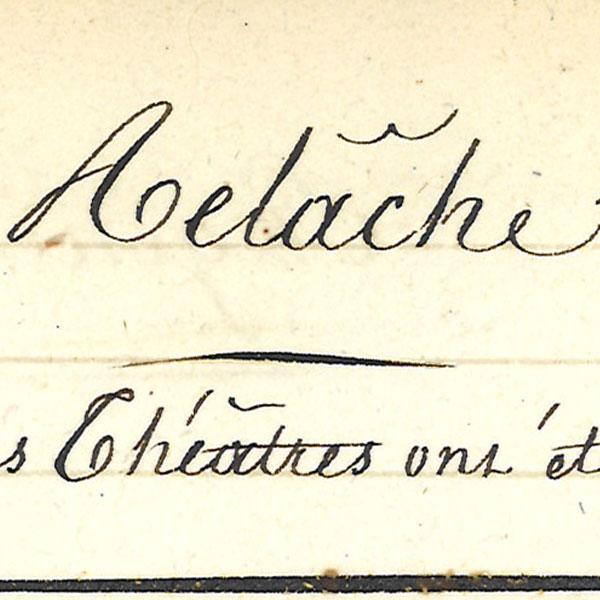 Relâche
s Théâtres ont ét